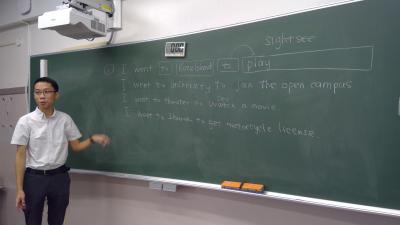 sightsee
I went to Hiroshima to play
I went to University to join the open campus
I went to theater to watch a movie.
I went to to get motorcycle license.